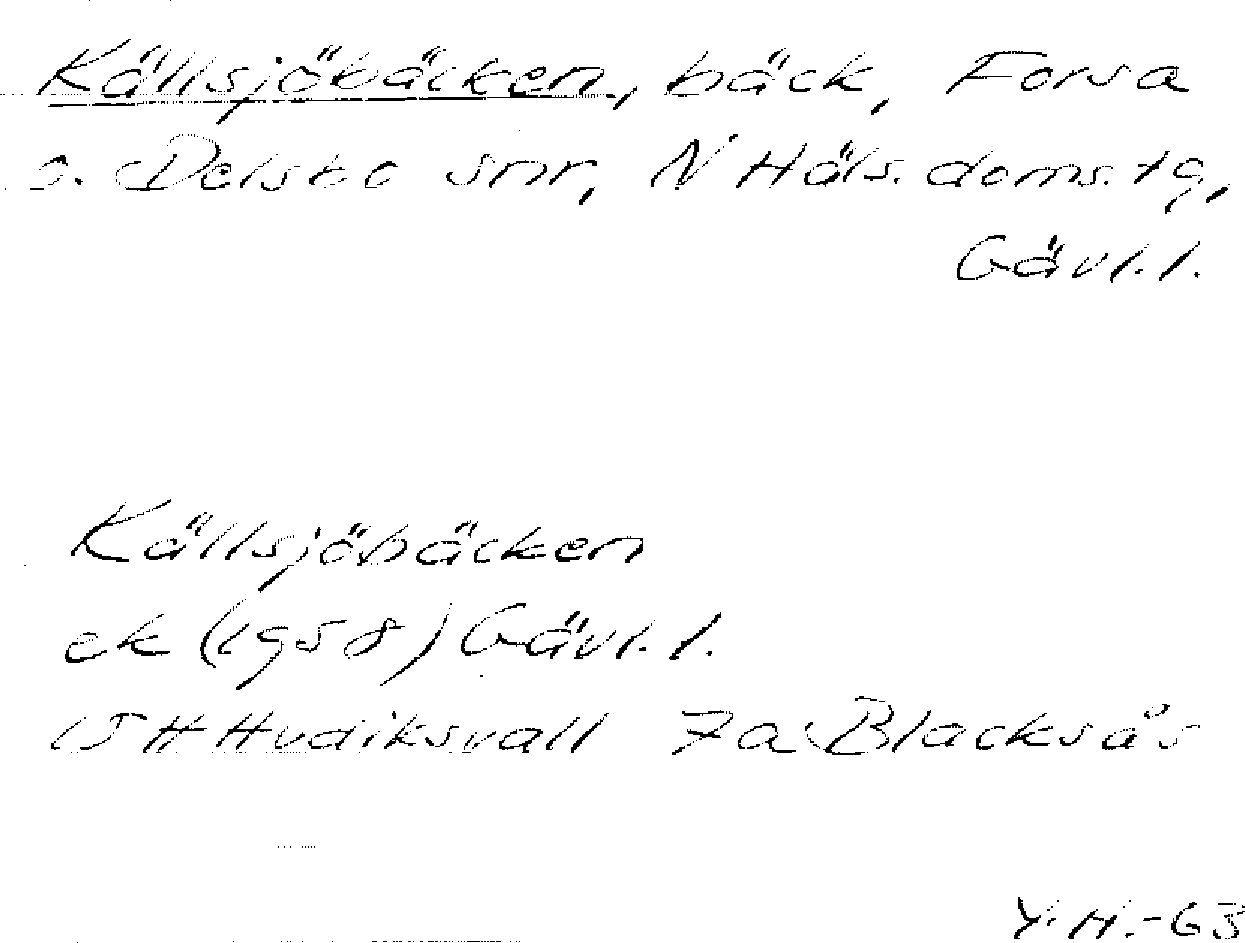 Källsjöbäcken, bäck, Forsa
o. Delsbo snr, N Häls. doms. tg,
Gävl. l.
Källsjöbäcken
ek (1958) Gävl. l.
15H Hudiksvall 7a Blacksås
Y. H. -63